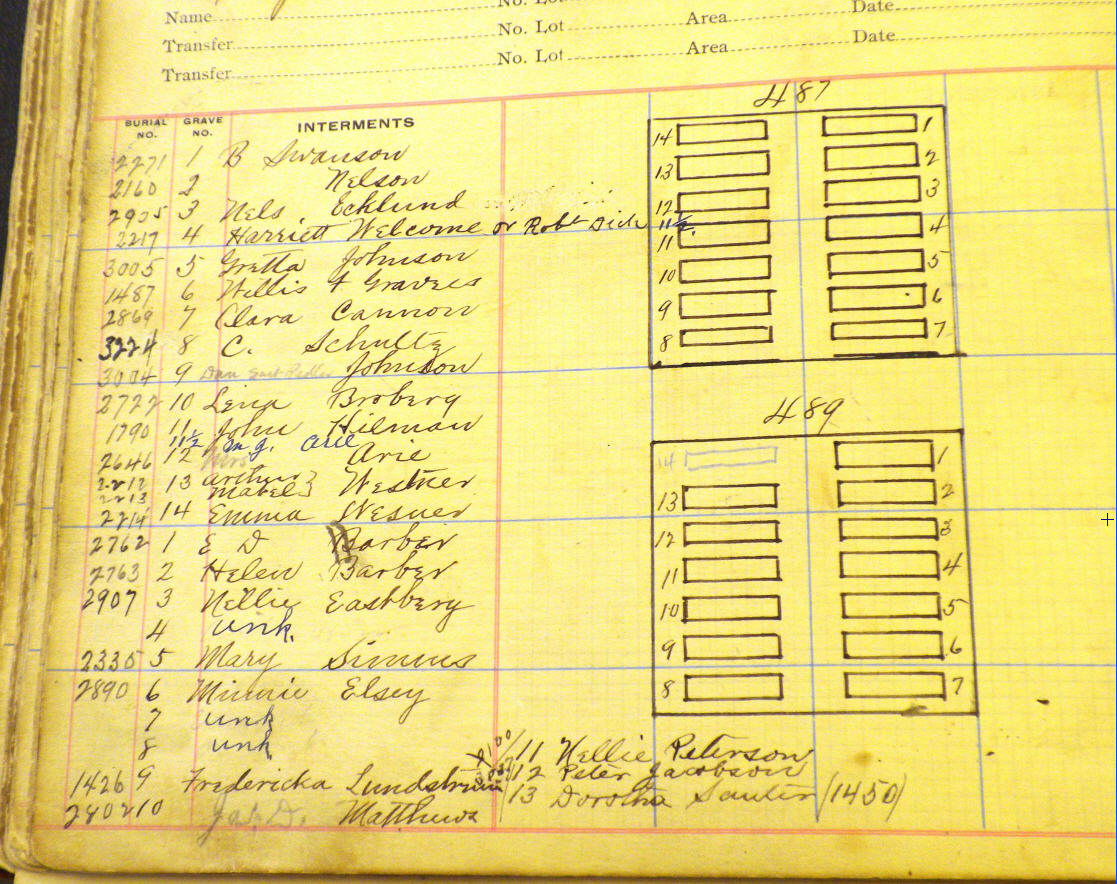 No. Lot
Name No. Lot Area Date
Transfer No. Lot Area Date
Transfer
BURIAL NO. GRAVE NO. INTERMENTS
2271 1 B Swanson
2160 2 Nelson
2905 3 Nels. Ecklund
2217 4 Harriett Welcome or Robt Dick 11½
3005 5 Gretta Johnson
1487 6 Willis F Graves
2869 7 Clara Cannon
3224 8 C. Schultz
3004 9 Johnson
2722 10 Lena Broberg
1790 11 John Hilman
11½ m.g. Arie
2646 12 Mrs Arie
2212 13 Arthur } Westner
2213 Mabel }
2214 14 Emma Wesner
2762 1 E D Barber
2763 2 Helen Barber
2907 3 Nellie Eastberg
4 unk.
2335 5 Mary Simms
2890 6 Minnie Elsey
7 unk
8 unk
1426 9 Fredericka Lundstrum
2802 10 Jas. D. Matthews
11 Nellie Peterson
12 Peter Jacobson
13 Dorotha Sauter (1450)
487
14 1
13 2
12 3
11½
11 4
10 5
9 6
8 7
489
14 1
13 2
12 3
11 4
10 5
9 6
8 7